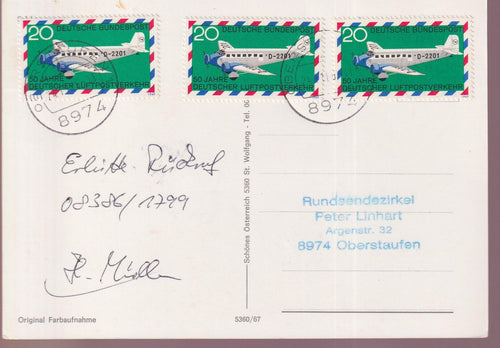 20 DEUTSCHE BUNDESPOST
D-2201
50 JAHRE
DEUTSCHER LUFTPOSTVERKEHR
20 DEUTSCHE BUNDESPOST
D-2201
50 JAHRE
DEUTSCHER LUFTPOSTVERKEHR
20 DEUTSCHE BUNDESPOST
D-2201
50 JAHRE
DEUTSCHER LUFTPOSTVERKEHR
8974
8974
Erbitte Rückruf
08386/1799
Schönes Österreich 5360 St. Wolfgang - Tel. 06
Rundsendezirkel
Peter Linhart
Argenstr. 32
8974 Oberstaufen
Original Farbaufnahme
5360/67